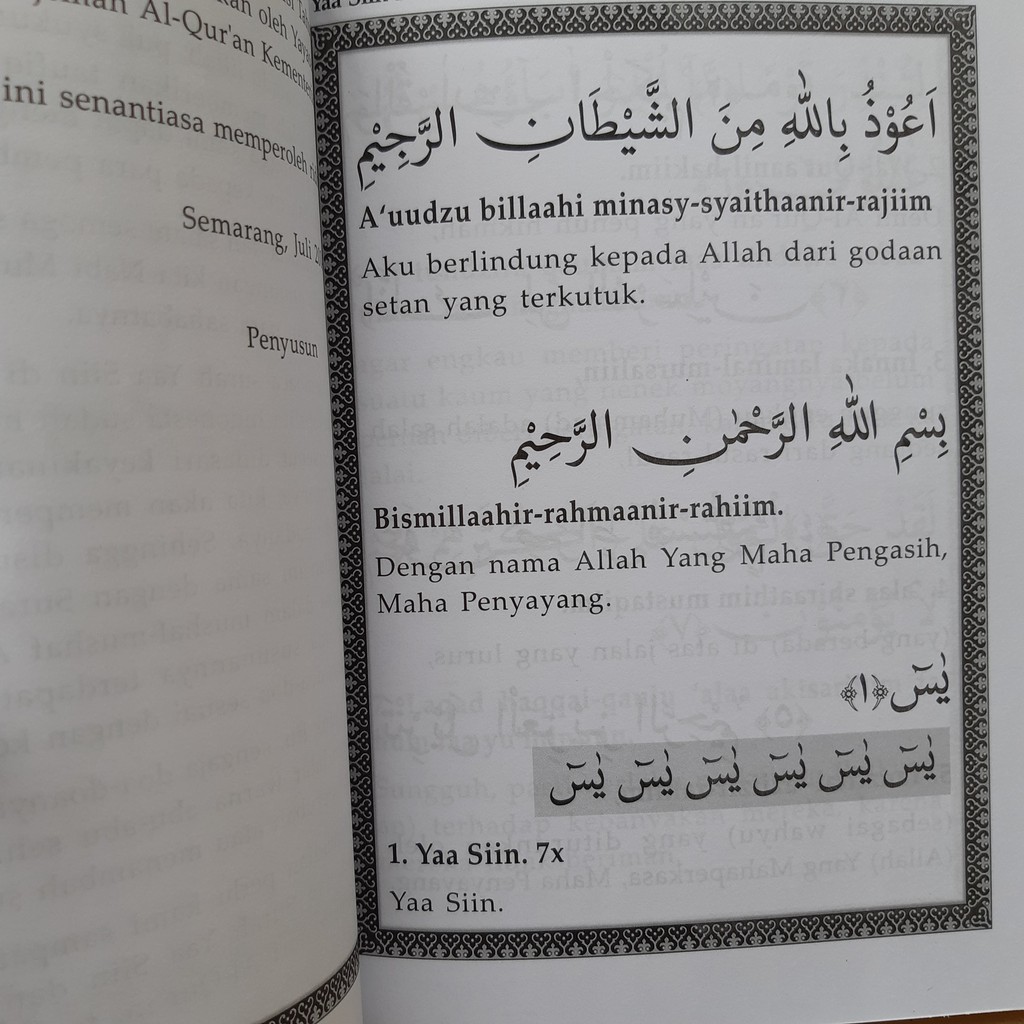 oleh
Al-Qur'an
ini senantiasa memperoleh
Semarang, Juli
Penyusun
Yaa
اَعُوْذُ بِاللّٰهِ مِنَ الشَّيْطَانِ الرَّجِيْمِ
A‘uudzu billaahi minasy-syaithaanir-rajiim
Aku berlindung kepada Allah dari godaan
setan yang terkutuk.
بِسْمِ اللّٰهِ الرَّحْمٰنِ الرَّحِيْمِ
Bismillaahir-rahmaanir-rahiim.
Dengan nama Allah Yang Maha Pengasih,
Maha Penyayang.
يٰسۤ ﴿١﴾
يٰسۤ يٰسۤ يٰسۤ يٰسۤ يٰسۤ يٰسۤ
1. Yaa Siin. 7x
Yaa Siin.